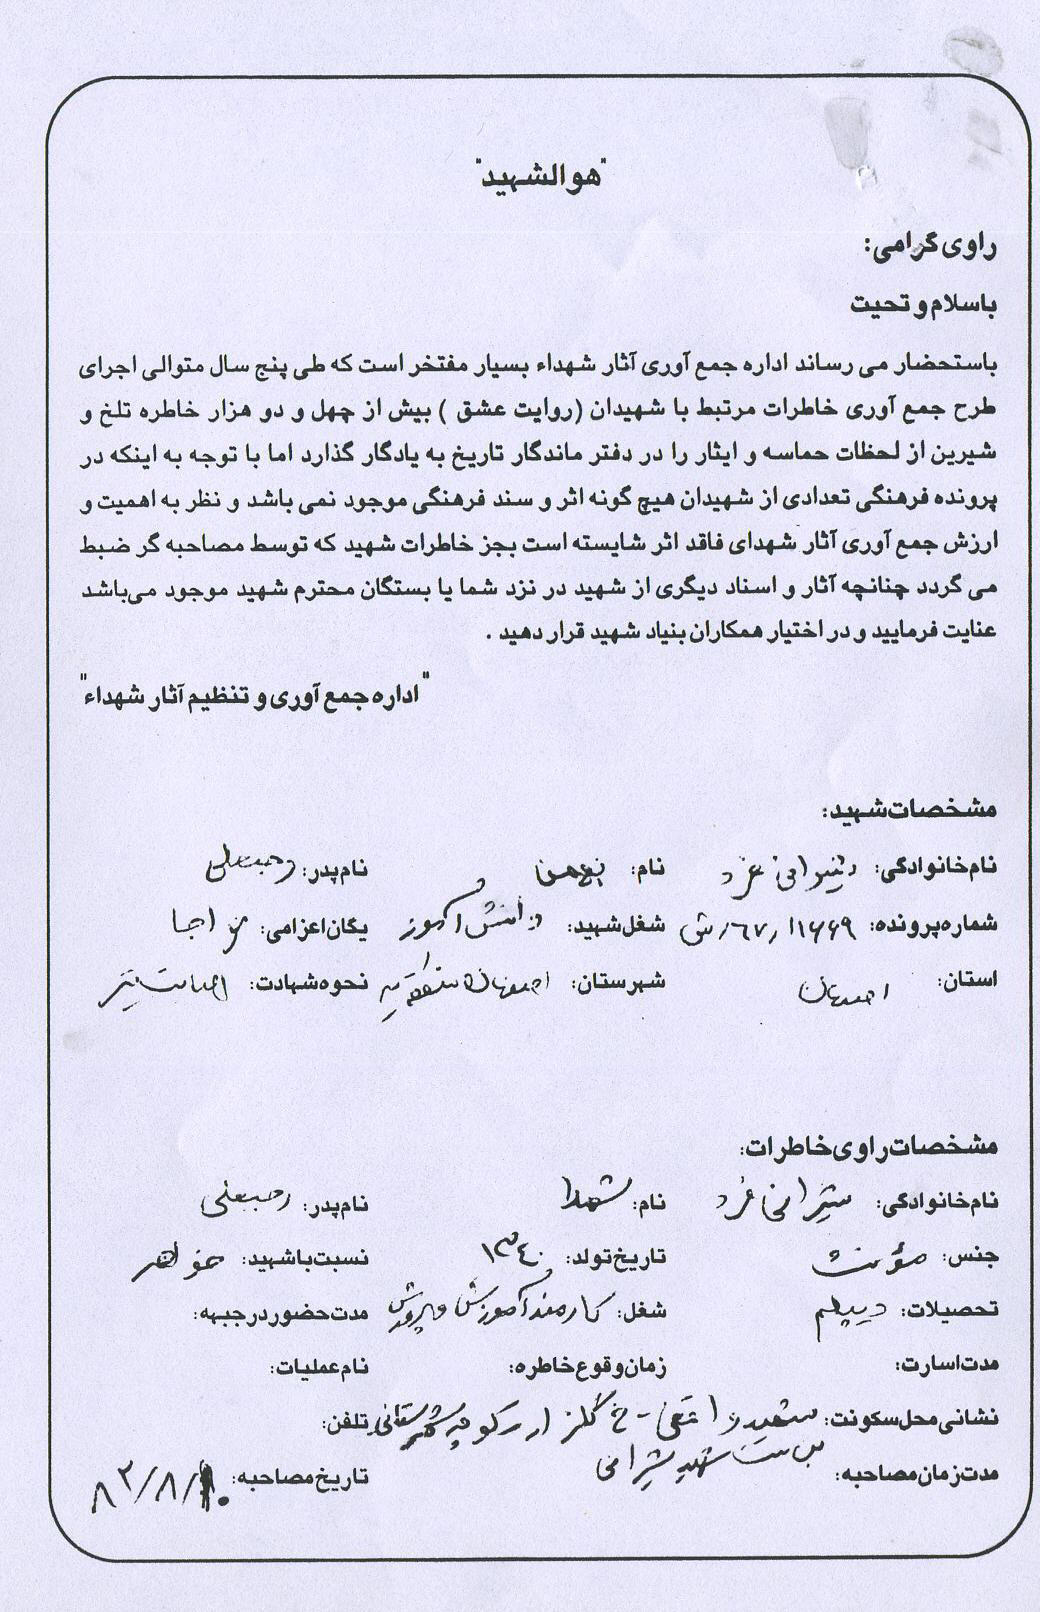 "هوالشهید"
راوی گرامی:
باسلام و تحیت
باستحضار می رساند اداره جمع آوری آثار شهداء بسیار مفتخر است که طی پنج سال متوالی اجرای
طرح جمع آوری خاطرات مرتبط با شهیدان (روایت عشق ) بیش از چهل و دو هزار خاطره تلخ و
شیرین از لحظات حماسه و ایثار را در دفتر ماندگار تاریخ به یادگار گذارد اما با توجه به اینکه در
پرونده فرهنگی تعدادی از شهیدان هیچ گونه اثر و سند فرهنگی موجود نمی باشد و نظر به اهمیت و
ارزش جمع آوری آثار شهدای فاقد اثر شایسته است بجز خاطرات شهید که توسط مصاحبه گر ضبط
می گردد چنانچه آثار و اسناد دیگری از شهید در نزد شما یا بستگان محترم شهید موجود می‌باشد
عنایت فرمایید و در اختیار همکاران بنیاد شهید قرار دهید .
"اداره جمع آوری و تنظیم آثار شهداء"
مشخصات شهید:
نام خانوادگی: شیرانی فرد نام: بهمن نام پدر: رجبعلی
شماره پرونده: شغل شهید: دانش آموز یگان اعزامی:
استان: اصفهان شهرستان: اصفهان منطقه نحوه شهادت:
مشخصات راوی خاطرات:
نام خانوادگی: شیرانی فرد نام: شهلا نام پدر: رجبعلی
جنس: مؤنث تاریخ تولد: ۱۳۴۰ نسبت با شهید: خواهر
تحصیلات: دیپلم شغل: کارمند آموزش و پرورش مدت حضور در جبهه:
مدت اسارت: زمان وقوع خاطره: نام عملیات:
نشانی محل سکونت: خ گلزار کوچه تلفن:
بن بست شهید شیرانی
مدت زمان مصاحبه: تاریخ مصاحبه: ۸۳/۸/۱۰